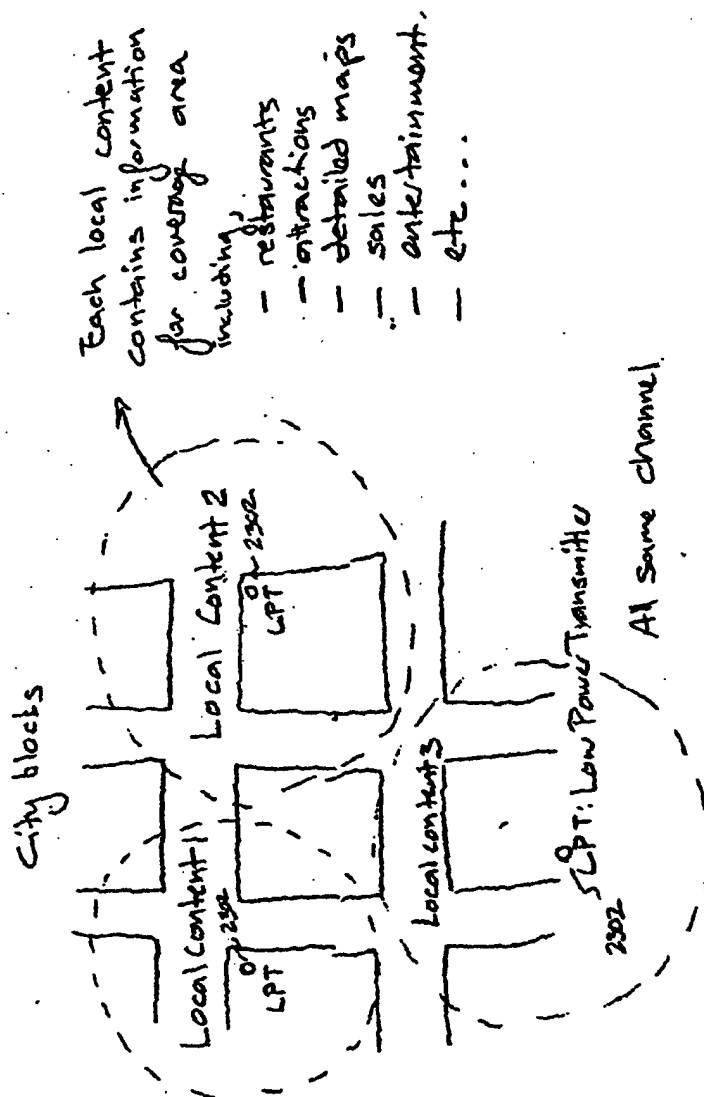 City blocks
Local Content 1
2302
LPT
Local Content 2
2302
LPT
Local content 3
2302
LPT: Low Power Transmitter
All same channel
Each local content
contains information
for coverage area
including,
- restaurants
- attractions
- detailed maps
- sales
- entertainment.
- etc...